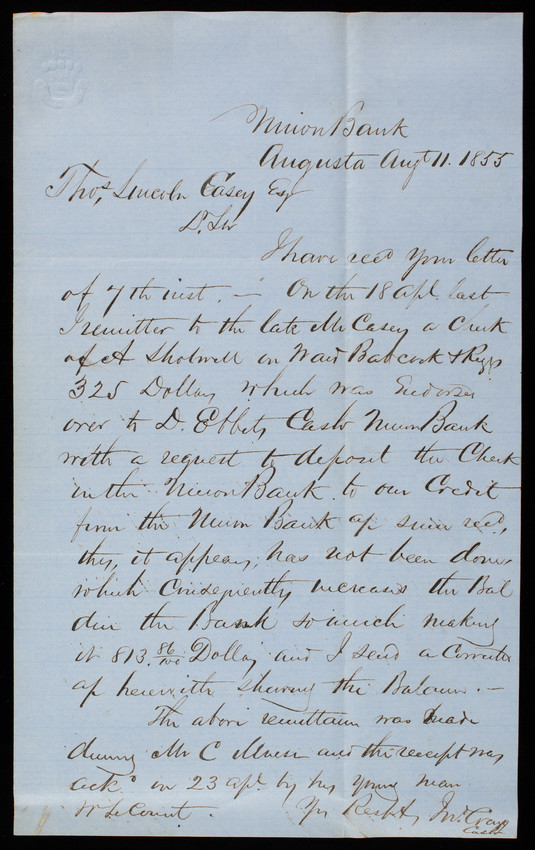 Union Bank
Augusta Augt 11. 1855
Thos. Lincoln Casey Esq
Dr. Sir
I have recd your letter
of 7th inst. — On the 18 apl. last
I remitted to the late Mr Casey a Check
of A Shotwell on Babcock &
325 Dollars which was Endorsed
over to D. Ebbets Cashr Union Bank
with a request to deposit the Check
in the Union Bank to our Credit
from the Union Bank a/c since recd,
this, it appears, has not been done,
which Consequently increases the Bal
due the Bank so much making
it 813.86/100 Dollars and I send a Corrected
a/c herewith shewing the Balance. —
The above remittance was made
during Mr C illness and the receipt was
ackd. on 23 apl. by his young man
Mr LeCount. Yr Respty Jno. Craig
Cashr